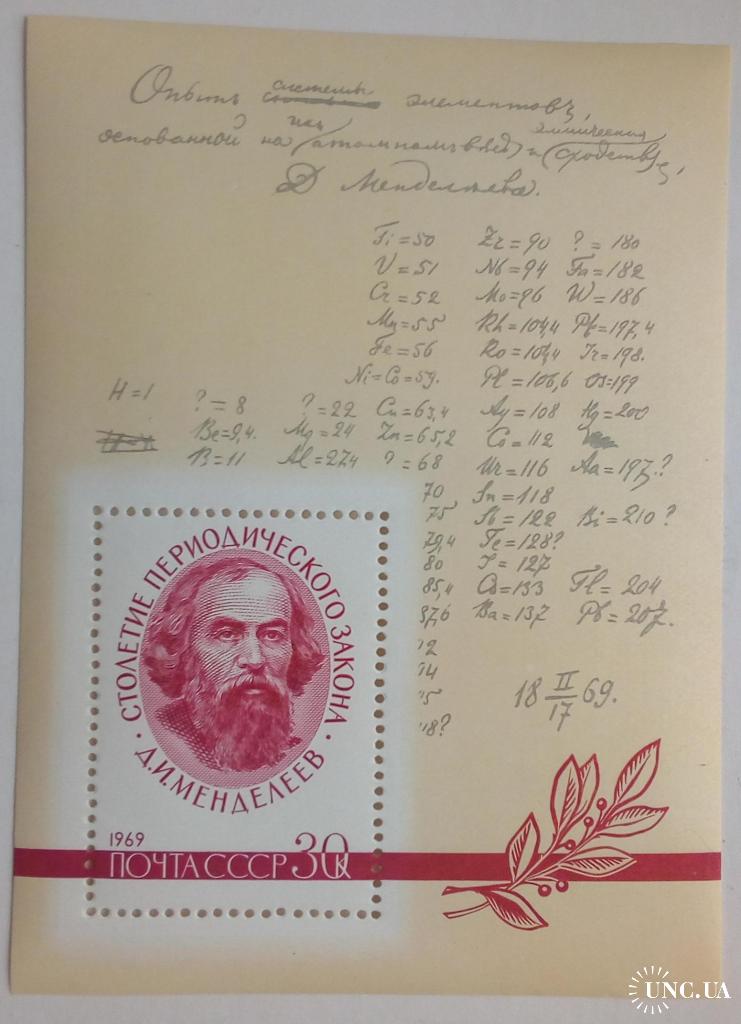 Опытъ системы элементовъ,
основанной на ихъ атомномъ вѣсѣ и химическомъ сродствѣ,
Д Менделѣева.
Ti=50 Zr=90 ?=180
V=51 Nb=94 Ta=182
Cr=52 Mo=96 W=186
Mn=55 Rh=104,4 Pt=197,4
Fe=56 Ro=104,4 Ir=198.
Ni=Co=59. Pl=106,6 Os=199
H=1 ?=8 ?=22 Cu=63,4 Ag=108 Hg=200
Be=9,4. Mg=24 Zn=65,2 Cd=112
B=11 Al=27,4 ?=68 Ur=116 Au=197?
70 Sn=118
75 Sb=122 Bi=210?
79,4 Te=128?
80 J=127
85,4 Cs=133 Tl=204
87,6 Ba=137 Pb=207.
18 II/17 69.
СТОЛЕТИЕ ПЕРИОДИЧЕСКОГО ЗАКОНА
Д.И.МЕНДЕЛЕЕВ
1969
ПОЧТА СССР 30к
UNC.UA